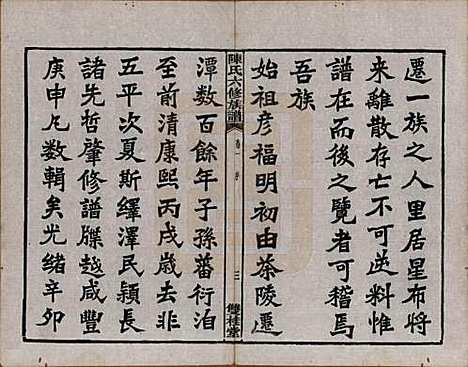 遷一族之人里居星布將
來離散存亡不可逆料惟
譜在而後之覽者可稽焉
吾族
始祖彥福明初由茶陵遷
陳氏六修族譜
卷一 序
三
雙桂堂
潭數百餘年子孫蕃衍洎
至前清康熙丙戌歲去非
五平次夏斯繹澤民穎長
諸先哲肇修譜牒越咸豐
庚申凡數輯矣光緒辛卯